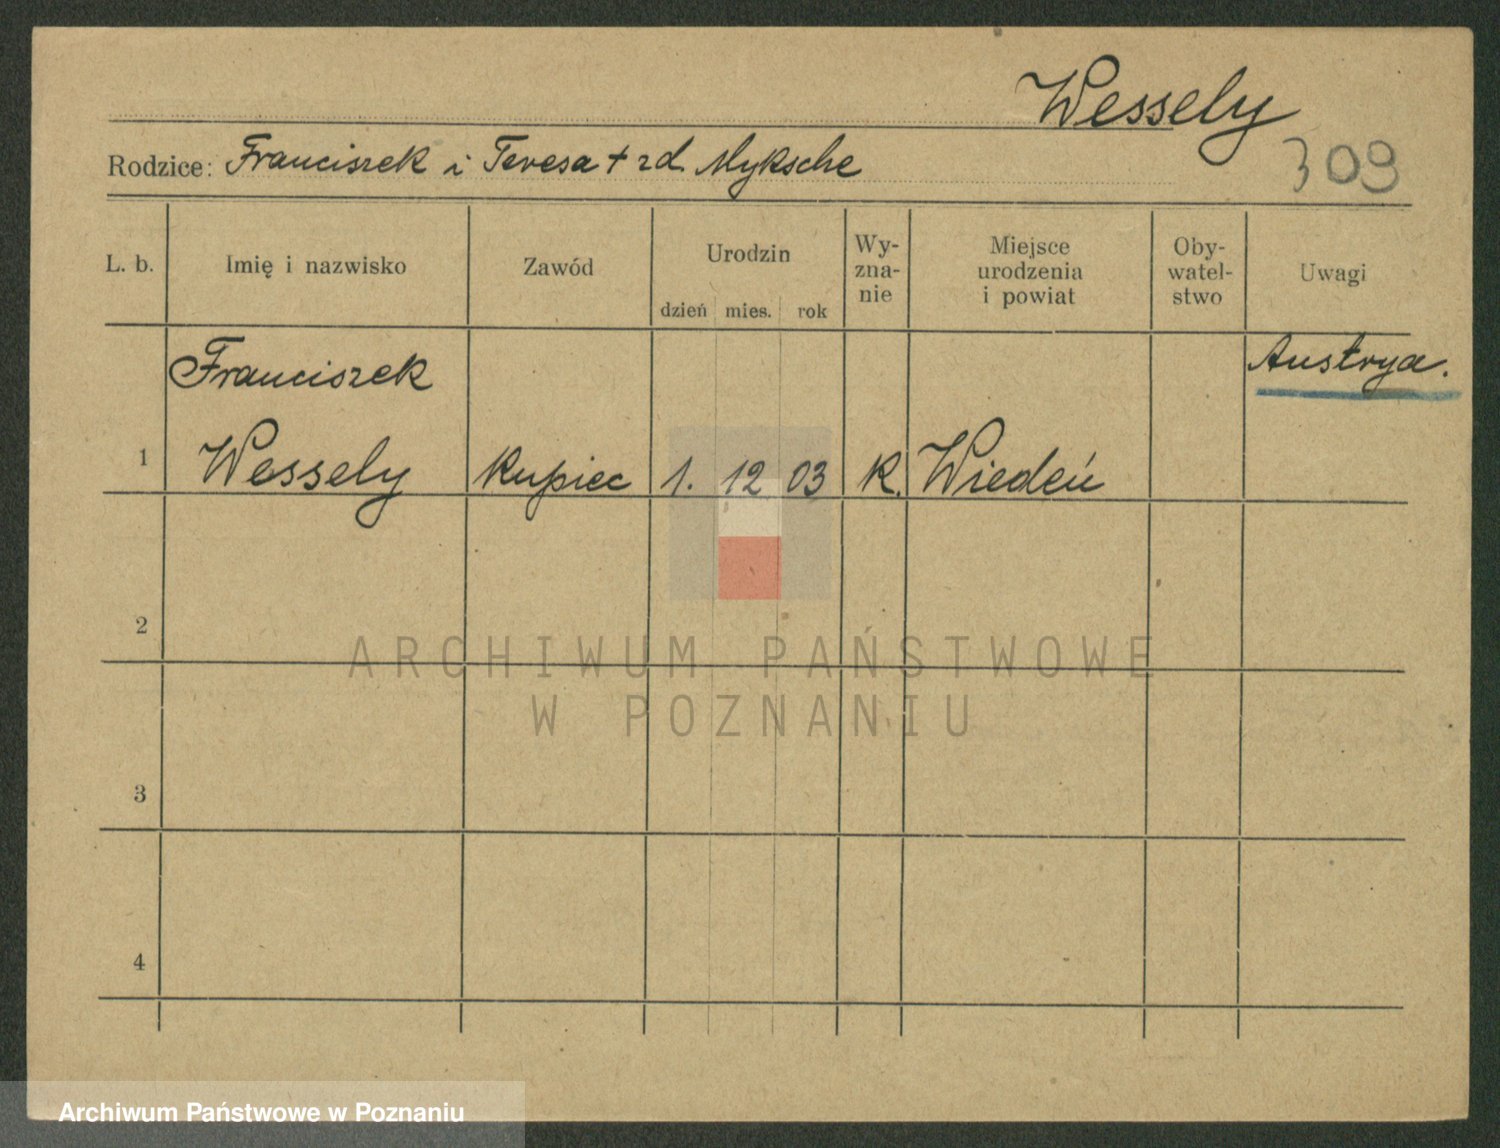 Wessely
309
Rodzice: Franciszek i Teresa + zd. Myksche
L. b.
Imię i nazwisko
Zawód
Urodzin
dzień mies. rok
Wy-
zna-
nie
Miejsce
urodzenia
i powiat
Oby-
watel-
stwo
Uwagi
1
Franciszek
Wessely
Kupiec
1. 12 03
K.
Wiedeń
Austrya.
2
3
4
ARCHIWUM PAŃSTWOWE
W POZNANIU
Archiwum Państwowe w Poznaniu